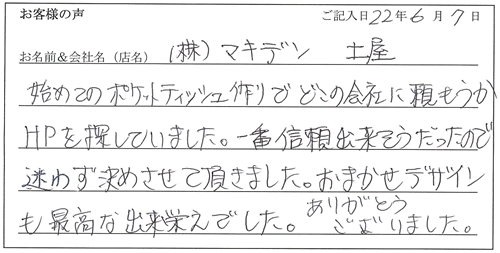 お客様の声 ご記入日22年6月7日
お名前&会社名(店名) (株)マキデン 土屋
始めてのポケットティッシュ作りでどこの会社に頼もうか
HPを探していました。一番信頼出来そうだったので
迷わず決めさせて頂きました。おまかせデザイン
も最高な出来栄えでした。ありがとう
ございました。